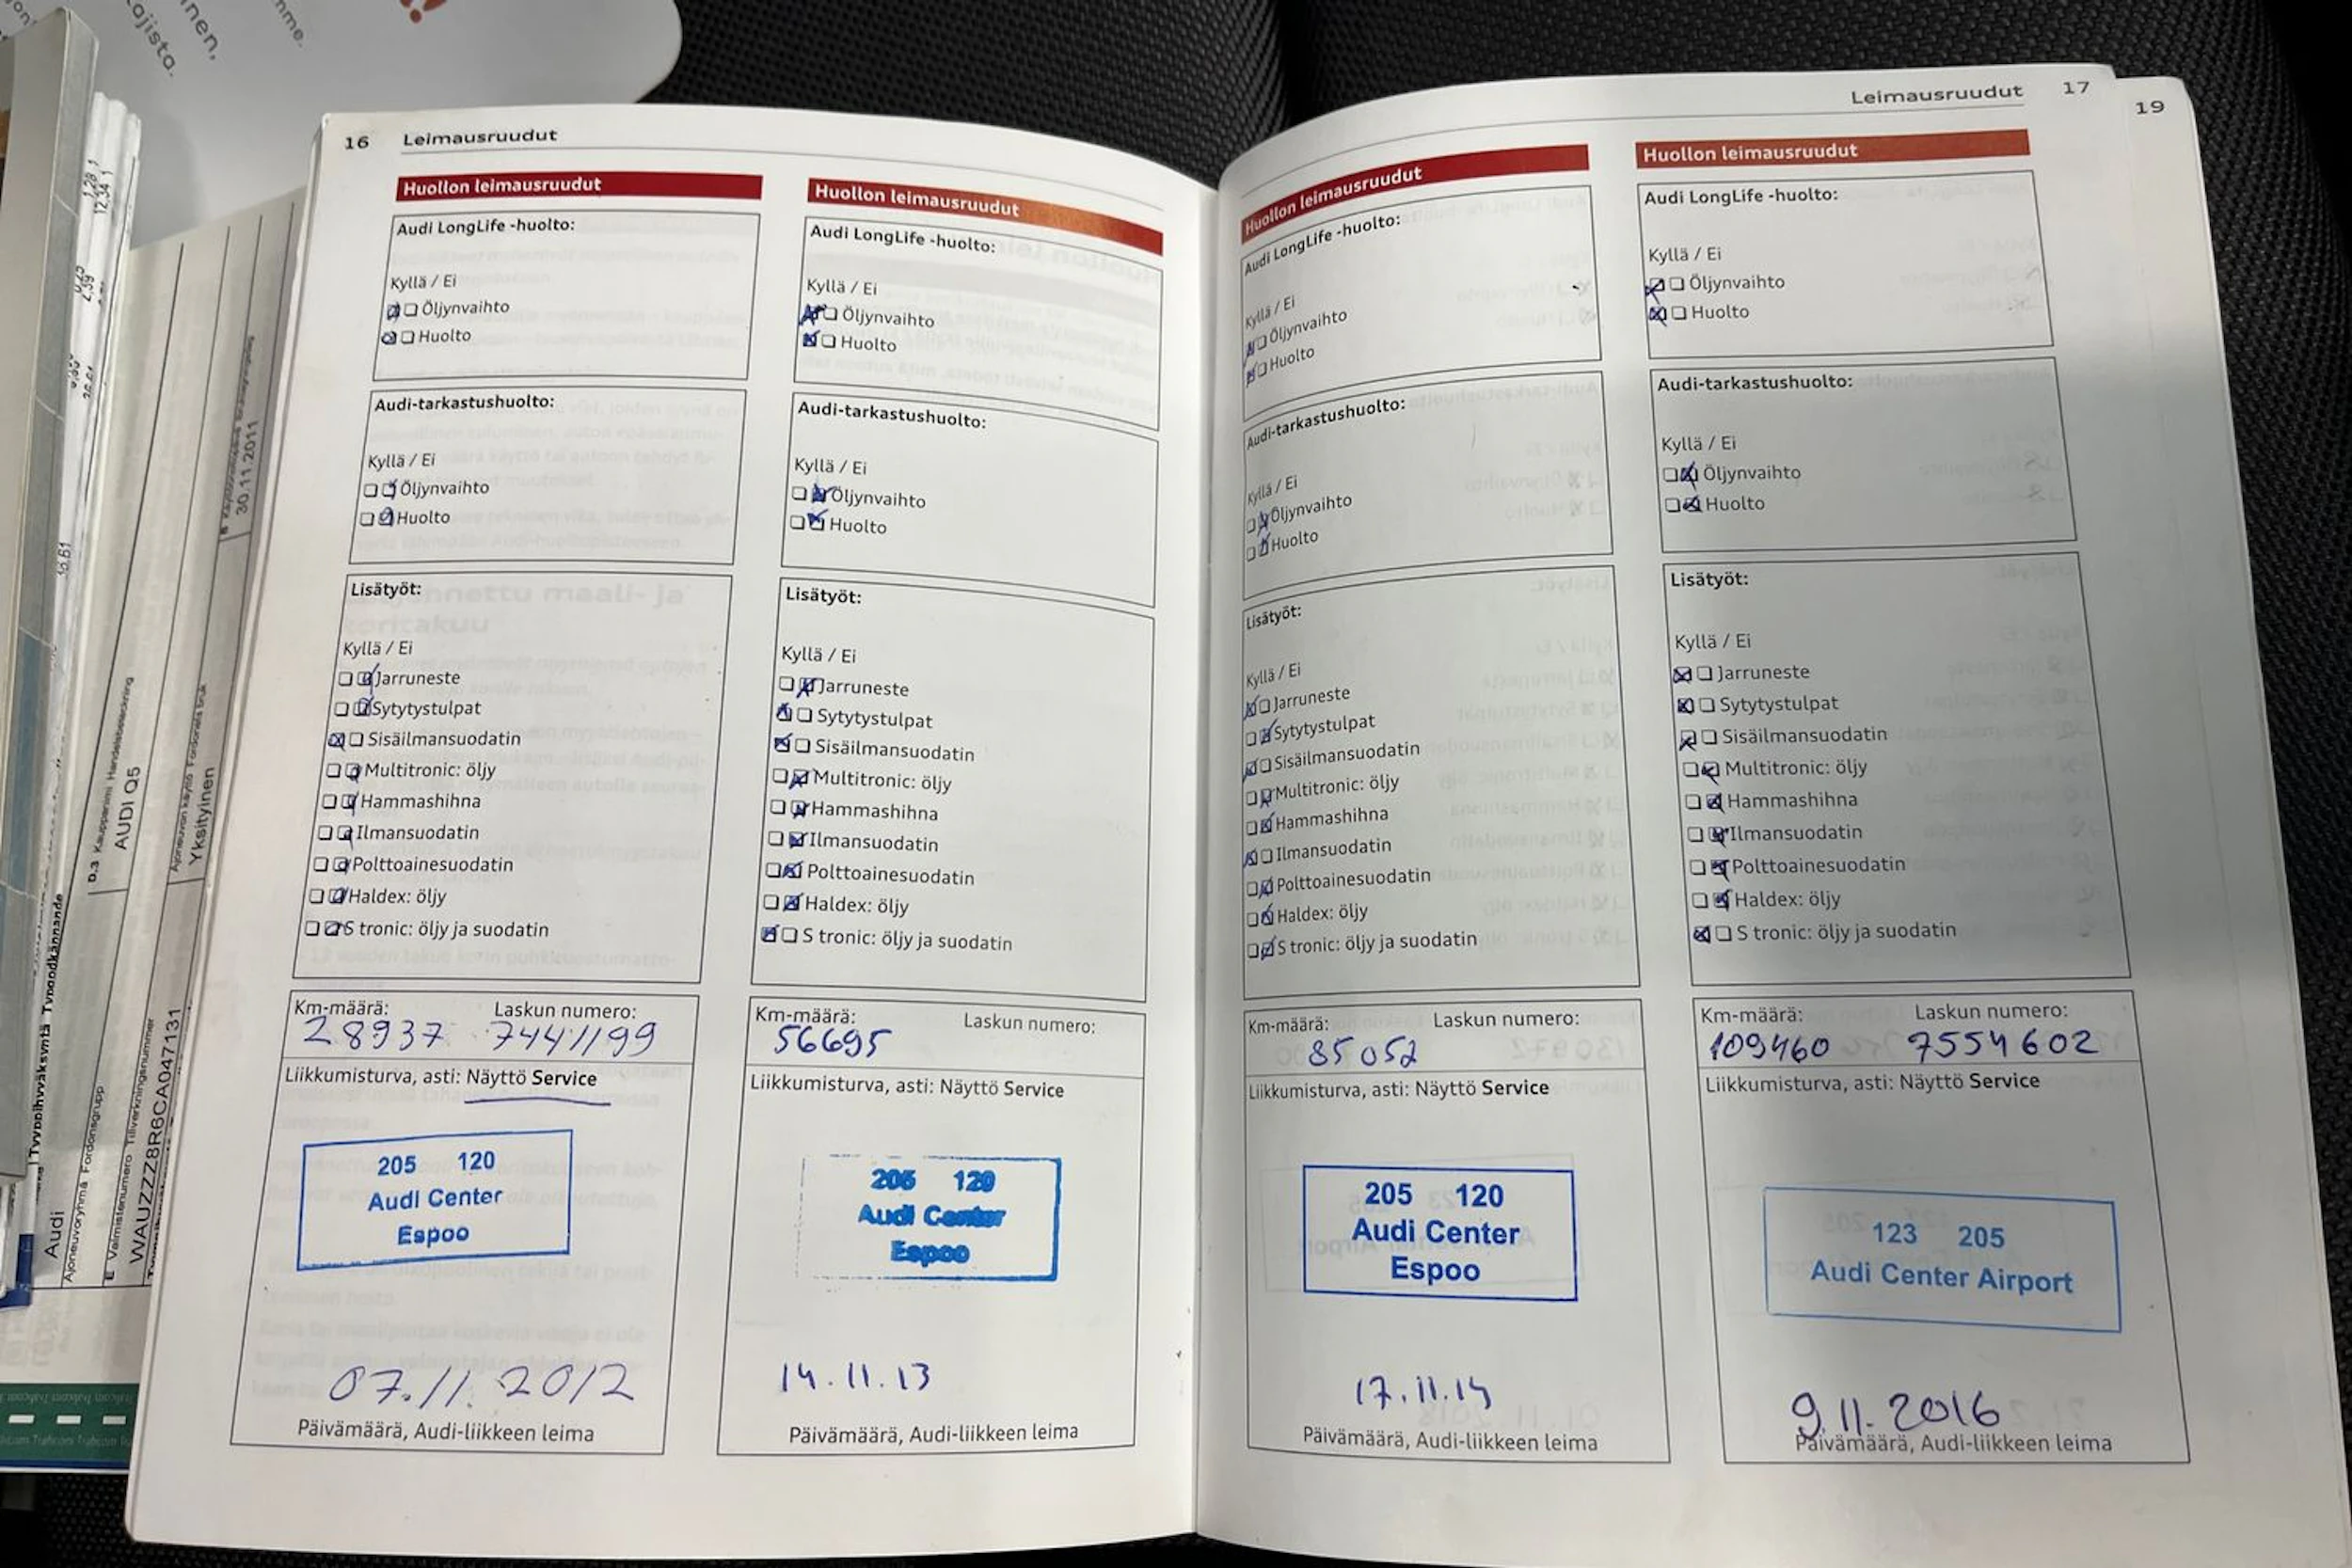 16 Leimausruudut
Huollon leimausruudut
Audi LongLife -huolto:
Kyllä / Ei
Öljynvaihto
Huolto
Audi-tarkastushuolto:
Kyllä / Ei
Öljynvaihto
Huolto
Lisätyöt:
Kyllä / Ei
Jarruneste
Sytytystulpat
Sisäilmansuodatin
Multitronic: öljy
Hammashihna
Ilmansuodatin
Polttoainesuodatin
Haldex: öljy
S tronic: öljy ja suodatin
Km-määrä: Laskun numero:
28937 7441199
Liikkumisturva, asti: Näyttö Service
205 120
Audi Center
Espoo
07.11.2012
Päivämäärä, Audi-liikkeen leima
Huollon leimausruudut
Audi LongLife -huolto:
Kyllä / Ei
Öljynvaihto
Huolto
Audi-tarkastushuolto:
Kyllä / Ei
Öljynvaihto
Huolto
Lisätyöt:
Kyllä / Ei
Jarruneste
Sytytystulpat
Sisäilmansuodatin
Multitronic: öljy
Hammashihna
Ilmansuodatin
Polttoainesuodatin
Haldex: öljy
S tronic: öljy ja suodatin
Km-määrä: Laskun numero:
56695
Liikkumisturva, asti: Näyttö Service
205 120
Audi Center
Espoo
14.11.13
Päivämäärä, Audi-liikkeen leima
Leimausruudut 17
Huollon leimausruudut
Audi LongLife -huolto:
Kyllä / Ei
Öljynvaihto
Huolto
Audi-tarkastushuolto:
Kyllä / Ei
Öljynvaihto
Huolto
Lisätyöt:
Kyllä / Ei
Jarruneste
Sytytystulpat
Sisäilmansuodatin
Multitronic: öljy
Hammashihna
Ilmansuodatin
Polttoainesuodatin
Haldex: öljy
S tronic: öljy ja suodatin
Km-määrä: Laskun numero:
85052
Liikkumisturva, asti: Näyttö Service
205 120
Audi Center
Espoo
17.11.14
Päivämäärä, Audi-liikkeen leima
Huollon leimausruudut
Audi LongLife -huolto:
Kyllä / Ei
Öljynvaihto
Huolto
Audi-tarkastushuolto:
Kyllä / Ei
Öljynvaihto
Huolto
Lisätyöt:
Kyllä / Ei
Jarruneste
Sytytystulpat
Sisäilmansuodatin
Multitronic: öljy
Hammashihna
Ilmansuodatin
Polttoainesuodatin
Haldex: öljy
S tronic: öljy ja suodatin
Km-määrä: Laskun numero:
109460 7554602
Liikkumisturva, asti: Näyttö Service
123 205
Audi Center Airport
9.11.2016
Päivämäärä, Audi-liikkeen leima
19
Audi
Ajoneuvoryhmä Fordonsgrupp
D.3 Kauppanimi Handelsbeteckning
AUDI Q5
E Valmistenumero Tillverkningsnummer
WAUZZZ8R6CA047131
Ajoneuvon käyttö Fordonets bruk
Yksityinen
30.11.2011